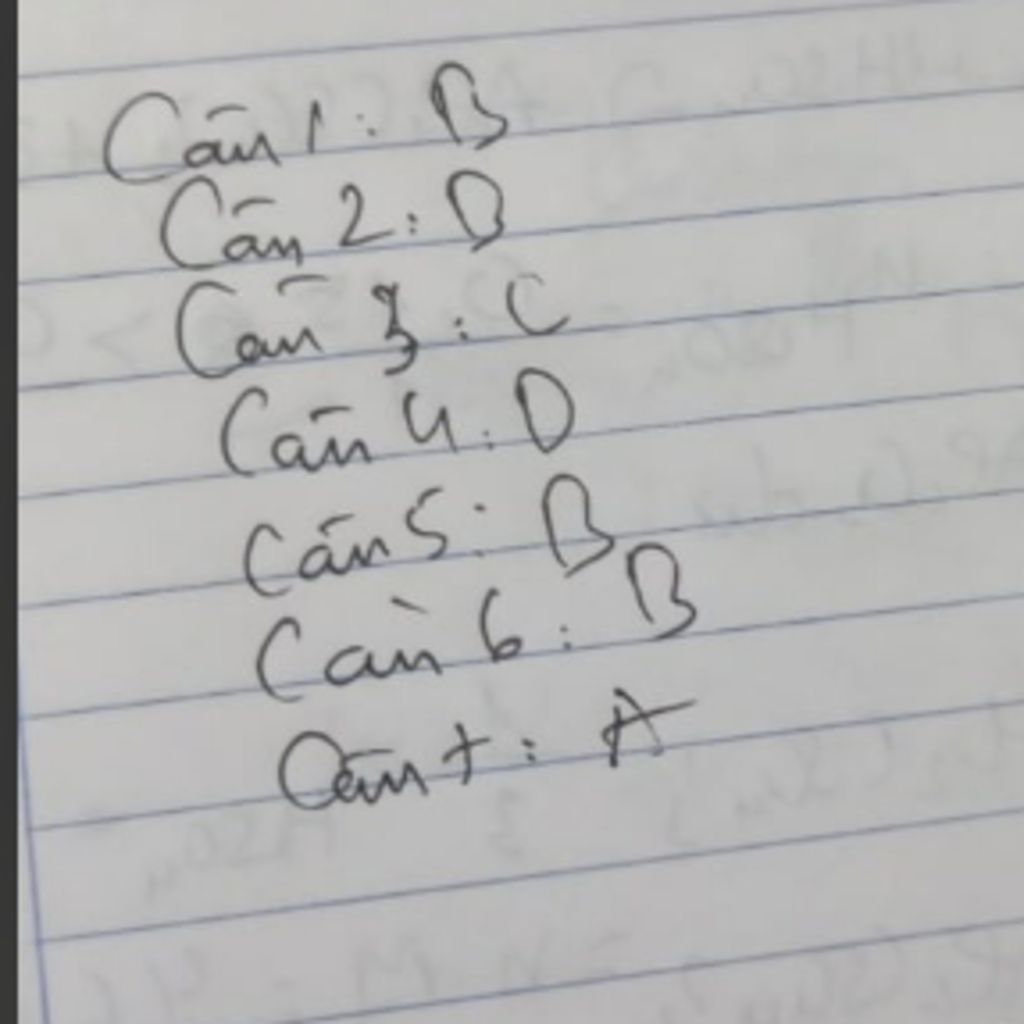 Câu 1: B
Câu 2: B
Câu 3: C
Câu 4: D
Câu 5: B
Câu 6: B
Câu 7: A